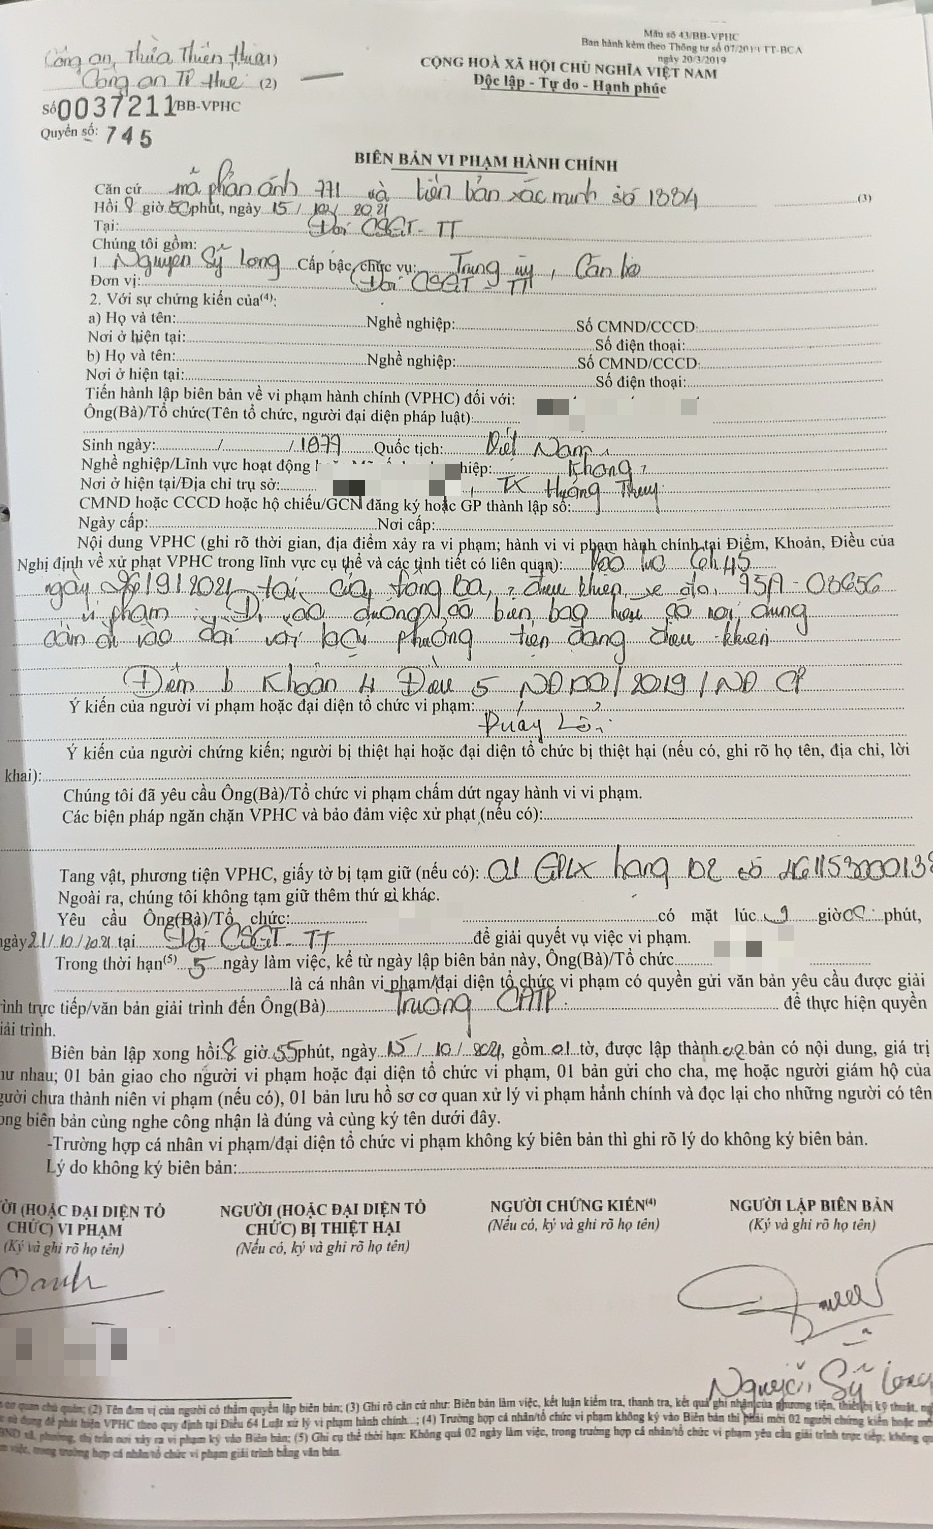 Mẫu số 43/BB-VPHC
Ban hành kèm theo Thông tư số 07/2019/TT-BCA
ngày 20/3/2019
Công an Thừa Thiên Huế (1)
Công an TP Huế (2)
CỘNG HOÀ XÃ HỘI CHỦ NGHĨA VIỆT NAM
Độc lập - Tự do - Hạnh phúc
Số 0037211/BB-VPHC
Quyển số: 745
BIÊN BẢN VI PHẠM HÀNH CHÍNH
Căn cứ mã phản ánh 771 và biên bản xác minh số 1884 (3)
Hồi 8 giờ 50 phút, ngày 15/10/2021
Tại: Đội CSGT-TT
Chúng tôi gồm:
1. Nguyễn Sỹ Long Cấp bậc, chức vụ: Trung úy, Cán bộ
Đơn vị: Đội CSGT-TT
2. Với sự chứng kiến của(4):
a) Họ và tên: Nghề nghiệp: Số CMND/CCCD:
Nơi ở hiện tại: Số điện thoại:
b) Họ và tên: Nghề nghiệp: Số CMND/CCCD:
Nơi ở hiện tại: Số điện thoại:
Tiến hành lập biên bản về vi phạm hành chính (VPHC) đối với:
Ông(Bà)/Tổ chức(Tên tổ chức, người đại diện pháp luật)
Sinh ngày: / /1977 Quốc tịch: Việt Nam
Nghề nghiệp/Lĩnh vực hoạt động hiệp: Không
Nơi ở hiện tại/Địa chỉ trụ sở: , TX Hương Thủy
CMND hoặc CCCD hoặc hộ chiếu/GCN đăng ký hoặc GP thành lập số:
Ngày cấp: Nơi cấp:
Nội dung VPHC (ghi rõ thời gian, địa điểm xảy ra vi phạm; hành vi vi phạm hành chính tại Điểm, Khoản, Điều của
Nghị định về xử phạt VPHC trong lĩnh vực cụ thể và các tình tiết có liên quan): Vào lúc 6h45
ngày 26/9/2021, tại cửa Đông Ba, điều khiển xe ôtô 75A-08656
vi phạm: Đi vào đường có biển báo hiệu có nội dung
cấm đi vào đối với loại phương tiện đang điều khiển
Điểm b Khoản 4 Điều 5 NĐ100/2019/NĐ CP
Ý kiến của người vi phạm hoặc đại diện tổ chức vi phạm:
Ý kiến của người chứng kiến; người bị thiệt hại hoặc đại diện tổ chức bị thiệt hại (nếu có, ghi rõ họ tên, địa chỉ, lời
khai):
Chúng tôi đã yêu cầu Ông(Bà)/Tổ chức vi phạm chấm dứt ngay hành vi vi phạm.
Các biện pháp ngăn chặn VPHC và bảo đảm việc xử phạt (nếu có):
Tang vật, phương tiện VPHC, giấy tờ bị tạm giữ (nếu có): 01 GPLX hạng D2 số
Ngoài ra, chúng tôi không tạm giữ thêm thứ gì khác.
Yêu cầu Ông(Bà)/Tổ chức: có mặt lúc 9 giờ 00 phút,
ngày 21/10/2021 tại Đội CSGT-TT để giải quyết vụ việc vi phạm.
Trong thời hạn(5) 5 ngày làm việc, kể từ ngày lập biên bản này, Ông(Bà)/Tổ chức
là cá nhân vi phạm/đại diện tổ chức vi phạm có quyền gửi văn bản yêu cầu được giải
trình trực tiếp/văn bản giải trình đến Ông(Bà) Trưởng CATP để thực hiện quyền
giải trình.
Biên bản lập xong hồi 8 giờ 55 phút, ngày 15/10/2021, gồm 01 tờ, được lập thành 02 bản có nội dung, giá trị
như nhau; 01 bản giao cho người vi phạm hoặc đại diện tổ chức vi phạm, 01 bản gửi cho cha, mẹ hoặc người giám hộ của
người chưa thành niên vi phạm (nếu có), 01 bản lưu hồ sơ cơ quan xử lý vi phạm hành chính và đọc lại cho những người có tên
trong biên bản cùng nghe công nhận là đúng và cùng ký tên dưới đây.
-Trường hợp cá nhân vi phạm/đại diện tổ chức vi phạm không ký biên bản thì ghi rõ lý do không ký biên bản.
Lý do không ký biên bản:
NGƯỜI (HOẶC ĐẠI DIỆN TỔ CHỨC) VI PHẠM
(Ký và ghi rõ họ tên)
Oanh
NGƯỜI (HOẶC ĐẠI DIỆN TỔ
CHỨC) BỊ THIỆT HẠI
(Nếu có, ký và ghi rõ họ tên)
NGƯỜI CHỨNG KIẾN(4)
(Nếu có, ký và ghi rõ họ tên)
NGƯỜI LẬP BIÊN BẢN
(Ký và ghi rõ họ tên)
Nguyễn Sỹ Long
cơ quan chủ quản; (2) Tên đơn vị của người có thẩm quyền lập biên bản; (3) Ghi rõ căn cứ như: Biên bản làm việc, kết luận kiểm tra, thanh tra, kết quả ghi nhận của phương tiện, thiết bị kỹ thuật,
sử dụng để phát hiện VPHC theo quy định tại Điều 64 Luật xử lý vi phạm hành chính...; (4) Trường hợp cá nhân/tổ chức vi phạm không ký vào Biên bản thì phải mời 02 người chứng kiến hoặc
UBND xã, phường, thị trấn nơi xảy ra vi phạm ký vào Biên bản; (5) Ghi cụ thể thời hạn: Không quá 02 ngày làm việc, trong trường hợp cá nhân/tổ chức vi phạm yêu cầu giải trình trực tiếp; không
việc, trong trường hợp cá nhân/tổ chức vi phạm giải trình bằng văn bản.